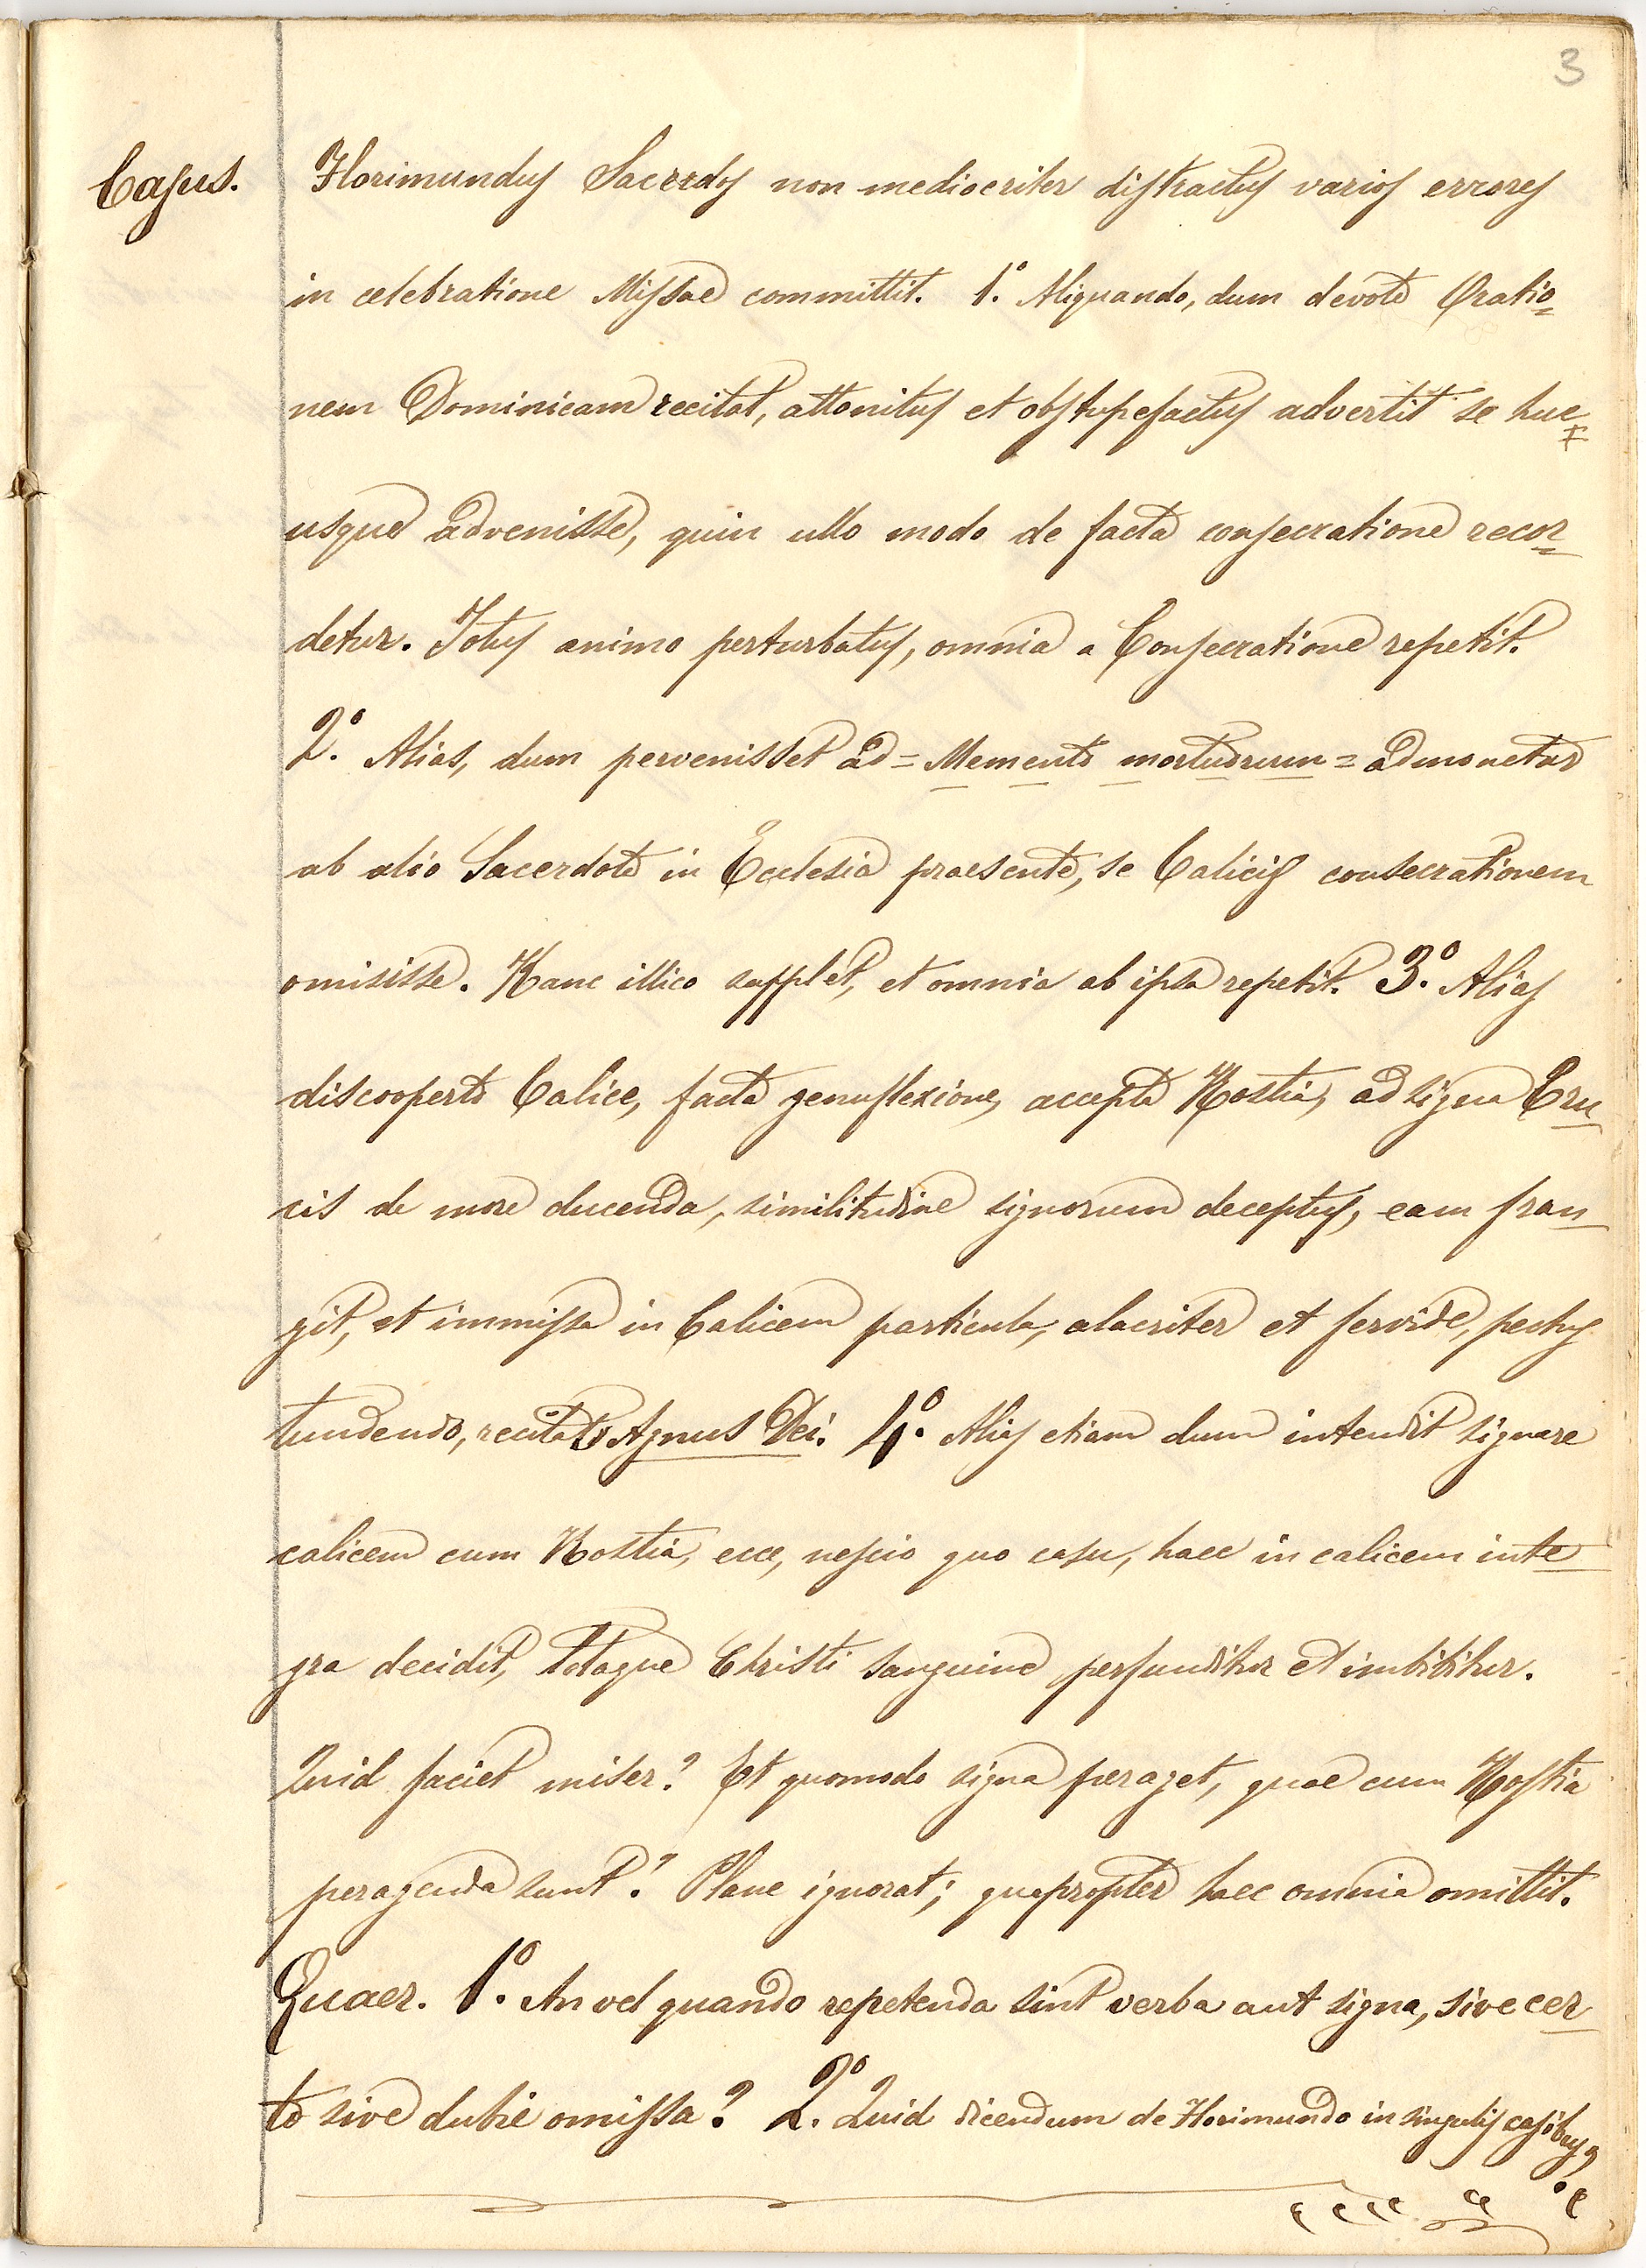 3
Casus.
Florimundus Sacerdos non mediocriter distractus varios errores
in celebratione Missae committit. 1.° Aliquando, dum devote Oratio=
nem Dominicam recitat, attonitus et obstupefactus advertit se huc=
usque advenisse, quin ullo modo de facta consecratione recor=
detur. Totus animo perturbatus, omnia a Consecratione repetit.
2.° Alias, dum pervenisset ad = Memento mortuorum = admonetur
ab alio Sacerdote in Ecclesia praesente, se Calicis consecrationem
omisisse. Hanc illico supplet, et omnia ab ipsa repetit. 3.° Alias
discooperto Calice, facta genuflexione, accepta Hostia, ad signa Cru_
cis de more ducenda, similitudine signorum deceptus, eam fran_
git, et immissa in Calicem particula, alacriter et fervide, pectus
tundendo, recitat Agnus Dei. 4.° Alias etiam dum intendit signare
calicem cum Hostia, ecce, nescio quo casu, haec in calicem inte_
gra decidit, totaque Christi sanguine perfunditur et imbibitur.
Quid faciet miser? Et quomodo signa peraget, quae cum Hostia
peragenda sunt? Plane ignorat; quapropter haec omnia omittit.
Quaer. 1.° An vel quando repetenda sint verba aut signa, sive cer_
to sive dubie omissa? 2.° Quid dicendum de Florimundo in singulis casibus?